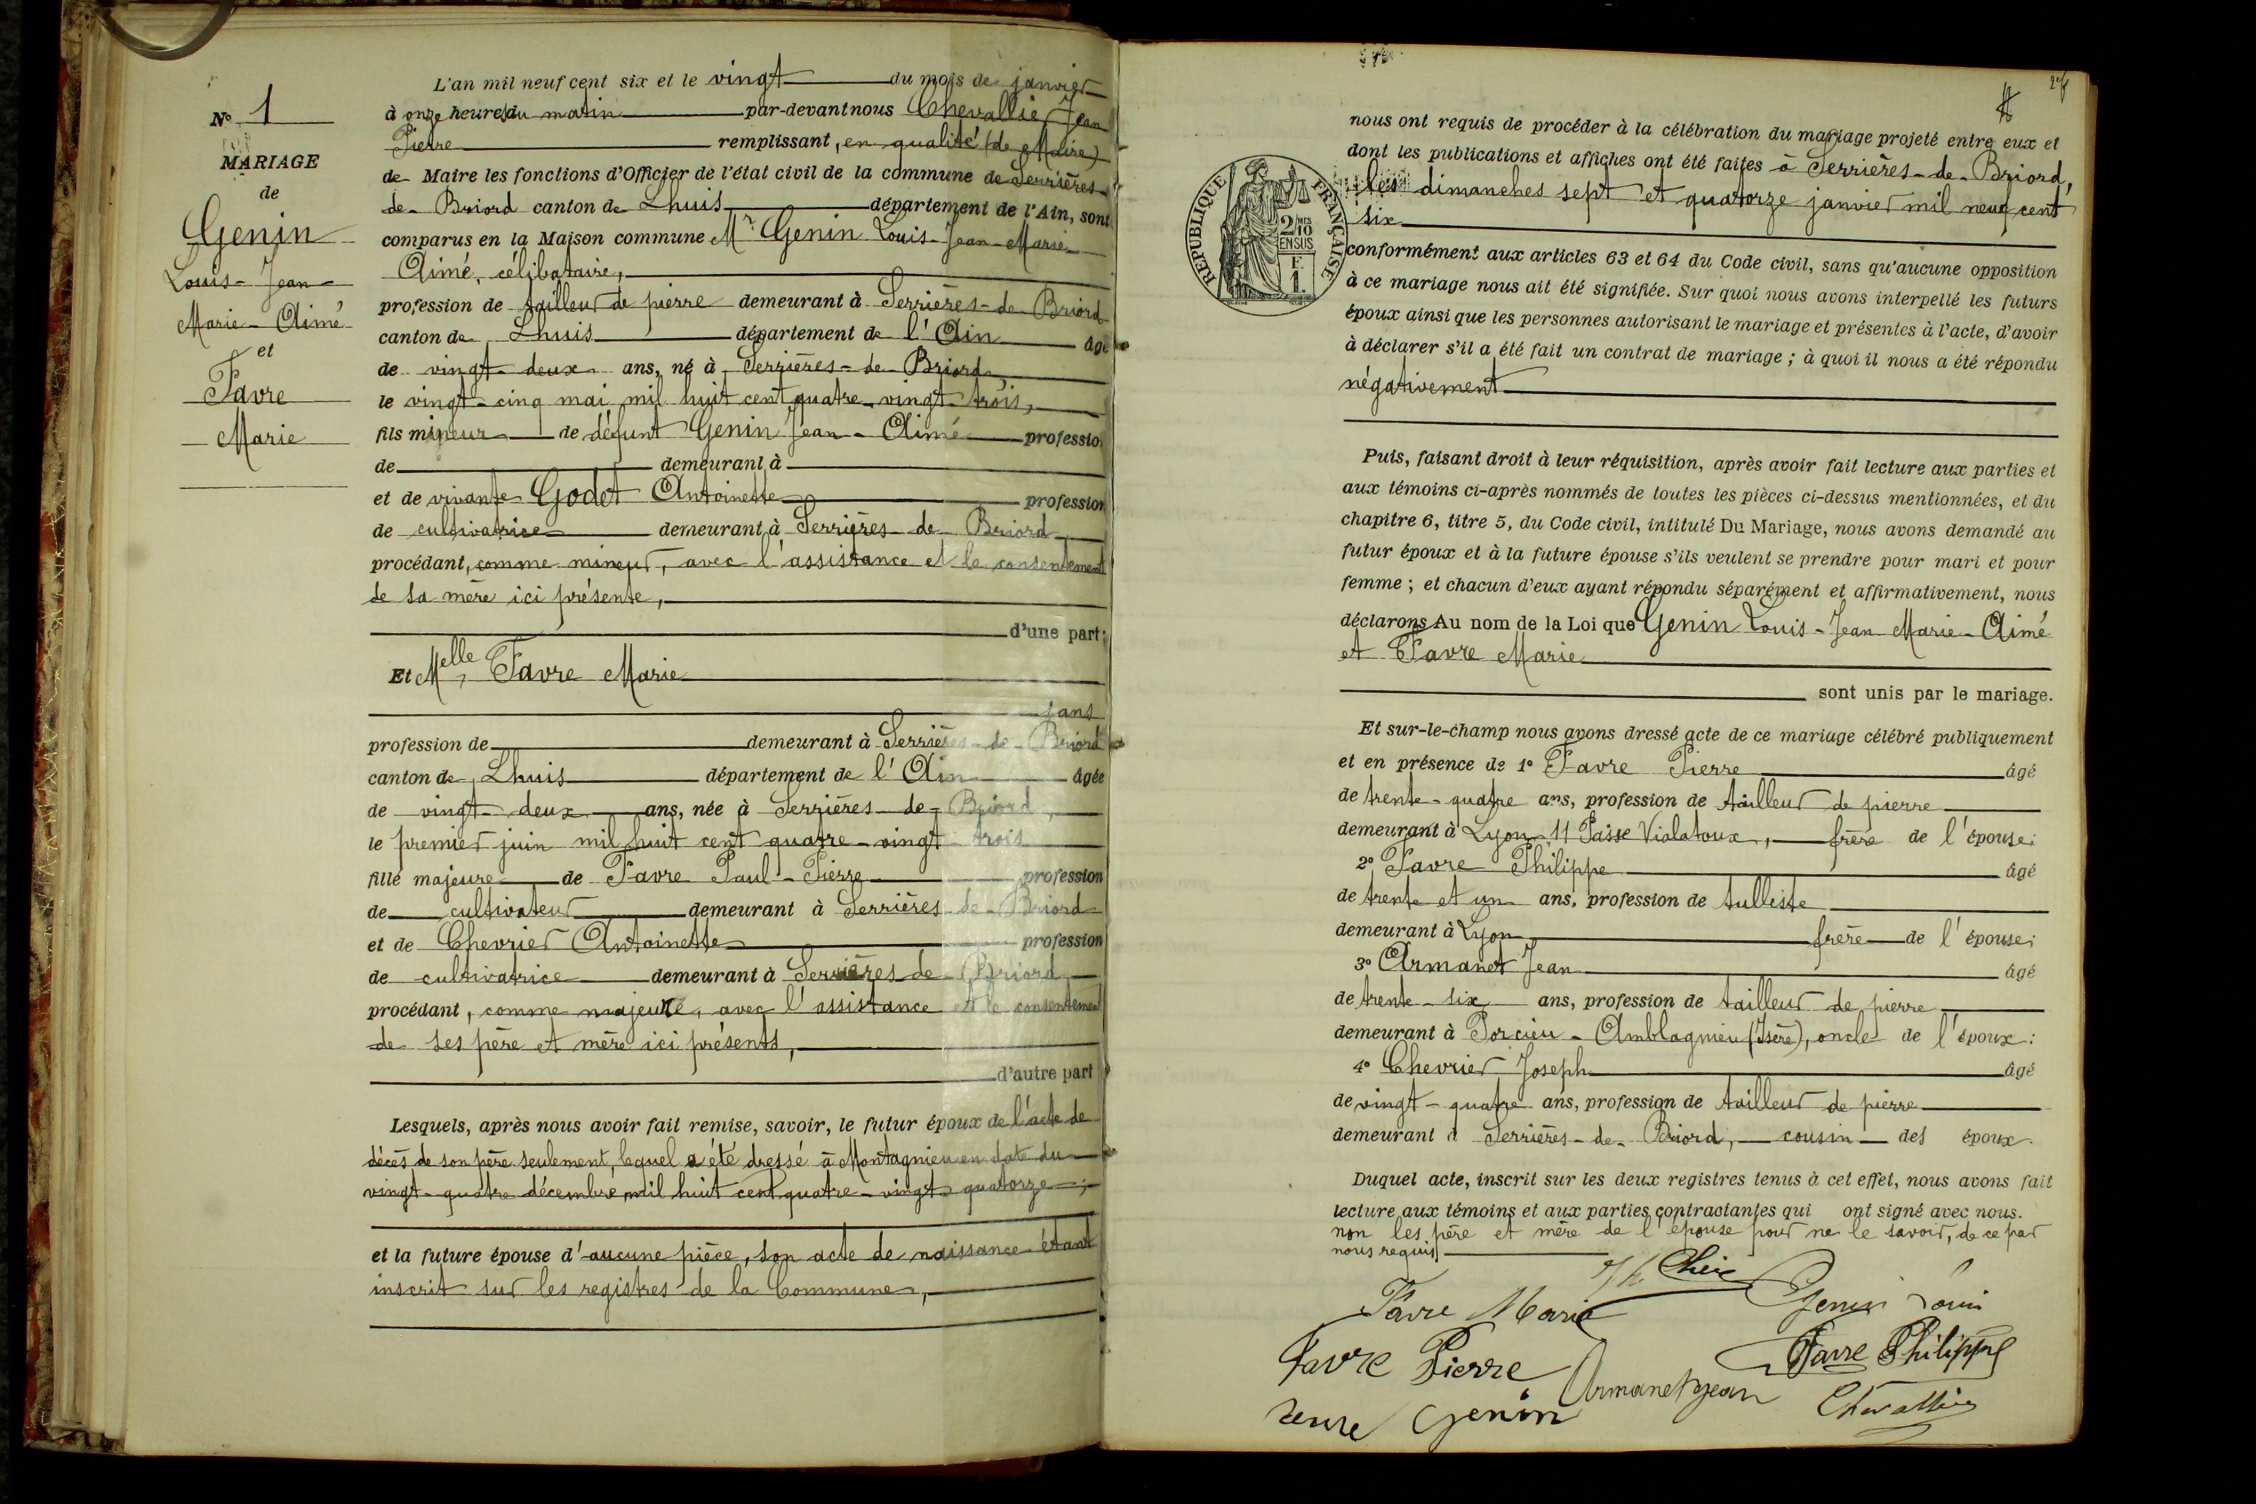 N° 1
MARIAGE
de
Genin
Louis-Jean-
Marie-Aimé
et
Favre
Marie
L'an mil neuf cent six et le vingt du mois de janvier
à onze heures du matin par-devant nous Chevallier Jean
Pierre remplissant, en qualité (de Maire)
de Maire les fonctions d'Officier de l'état civil de la commune de Serrières-
de-Briord canton de Lhuis département de l'Ain, sont
comparus en la Maison commune Mr Genin Louis-Jean-Marie
Aimé, célibataire,
profession de tailleur de pierre demeurant à Serrières-de-Briord
canton de Lhuis département de l'Ain âgé
de vingt-deux ans, né à Serrières-de-Briord
le vingt-cinq mai mil huit cent quatre-vingt-trois,
fils mineur de défunt Genin Jean-Aimé profession
de demeurant à
et de vivante Godet Antoinette profession
de cultivatrice demeurant à Serrières-de-Briord
procédant, comme mineur, avec l'assistance et le consentement
de sa mère ici présente,
d'une part;
Et Melle, Favre Marie
sans
profession de demeurant à Serrières-de-Briord
canton de Lhuis département de l'Ain âgée
de vingt-deux ans, née à Serrières-de-Briord,
le premier juin mil huit cent quatre-vingt-trois
fille majeure de Favre Paul-Pierre profession
de cultivateur demeurant à Serrières-de-Briord
et de Chevrier Antoinette profession
de cultivatrice demeurant à Serrières de Briord
procédant, comme majeure, avec l'assistance et le consentement
de ses père et mère ici présents,
d'autre part
Lesquels, après nous avoir fait remise, savoir, le futur époux de l'acte de
décès de son père seulement, lequel a été dressé à Montagnieu en date du
vingt-quatre décembre mil huit cent quatre-vingt-quatorze;
et la future épouse d'aucune pièce, son acte de naissance étant
inscrit sur les registres de la Commune,
RÉPUBLIQUE FRANÇAISE
2/10
EN SUS
F.
1
nous ont requis de procéder à la célébration du mariage projeté entre eux et
dont les publications et affiches ont été faites à Serrières-de-Briord,
les dimanches sept et quatorze janvier mil neuf cent
six
conformément aux articles 63 et 64 du Code civil, sans qu'aucune opposition
à ce mariage nous ait été signifiée. Sur quoi nous avons interpellé les futurs
époux ainsi que les personnes autorisant le mariage et présentes à l'acte, d'avoir
à déclarer s'il a été fait un contrat de mariage; à quoi il nous a été répondu
négativement
Puis, faisant droit à leur réquisition, après avoir fait lecture aux parties et
aux témoins ci-après nommés de toutes les pièces ci-dessus mentionnées, et du
chapitre 6, titre 5, du Code civil, intitulé Du Mariage, nous avons demandé au
futur époux et à la future épouse s'ils veulent se prendre pour mari et pour
femme; et chacun d'eux ayant répondu séparément et affirmativement, nous
déclarons Au nom de la Loi que Genin Louis-Jean Marie-Aimé
et Favre Marie
sont unis par le mariage.
Et sur-le-champ nous avons dressé acte de ce mariage célébré publiquement
et en présence de 1° Favre Pierre âgé
de trente-quatre ans, profession de tailleur de pierre
demeurant à Lyon 11 Passe Vialatoux, frère de l'épouse;
2° Favre Philippe âgé
de trente et un ans, profession de tulliste
demeurant à Lyon frère de l'épouse;
3° Armanet Jean âgé
de trente-six ans, profession de tailleur de pierre
demeurant à Porcieu-Amblagnieu (Isère), oncle de l'époux:
4° Chevrier Joseph âgé
de vingt-quatre ans, profession de tailleur de pierre
demeurant à Serrières-de-Briord, cousin des époux.
Duquel acte, inscrit sur les deux registres tenus à cet effet, nous avons fait
lecture aux témoins et aux parties contractantes qui ont signé avec nous.
non les père et mère de l'épouse pour ne le savoir, de ce par
nous requis
Favre Marie
Genin Louis
Favre Pierre
Favre Philippe
Armanet Jean
Chevallier
veuve Genin